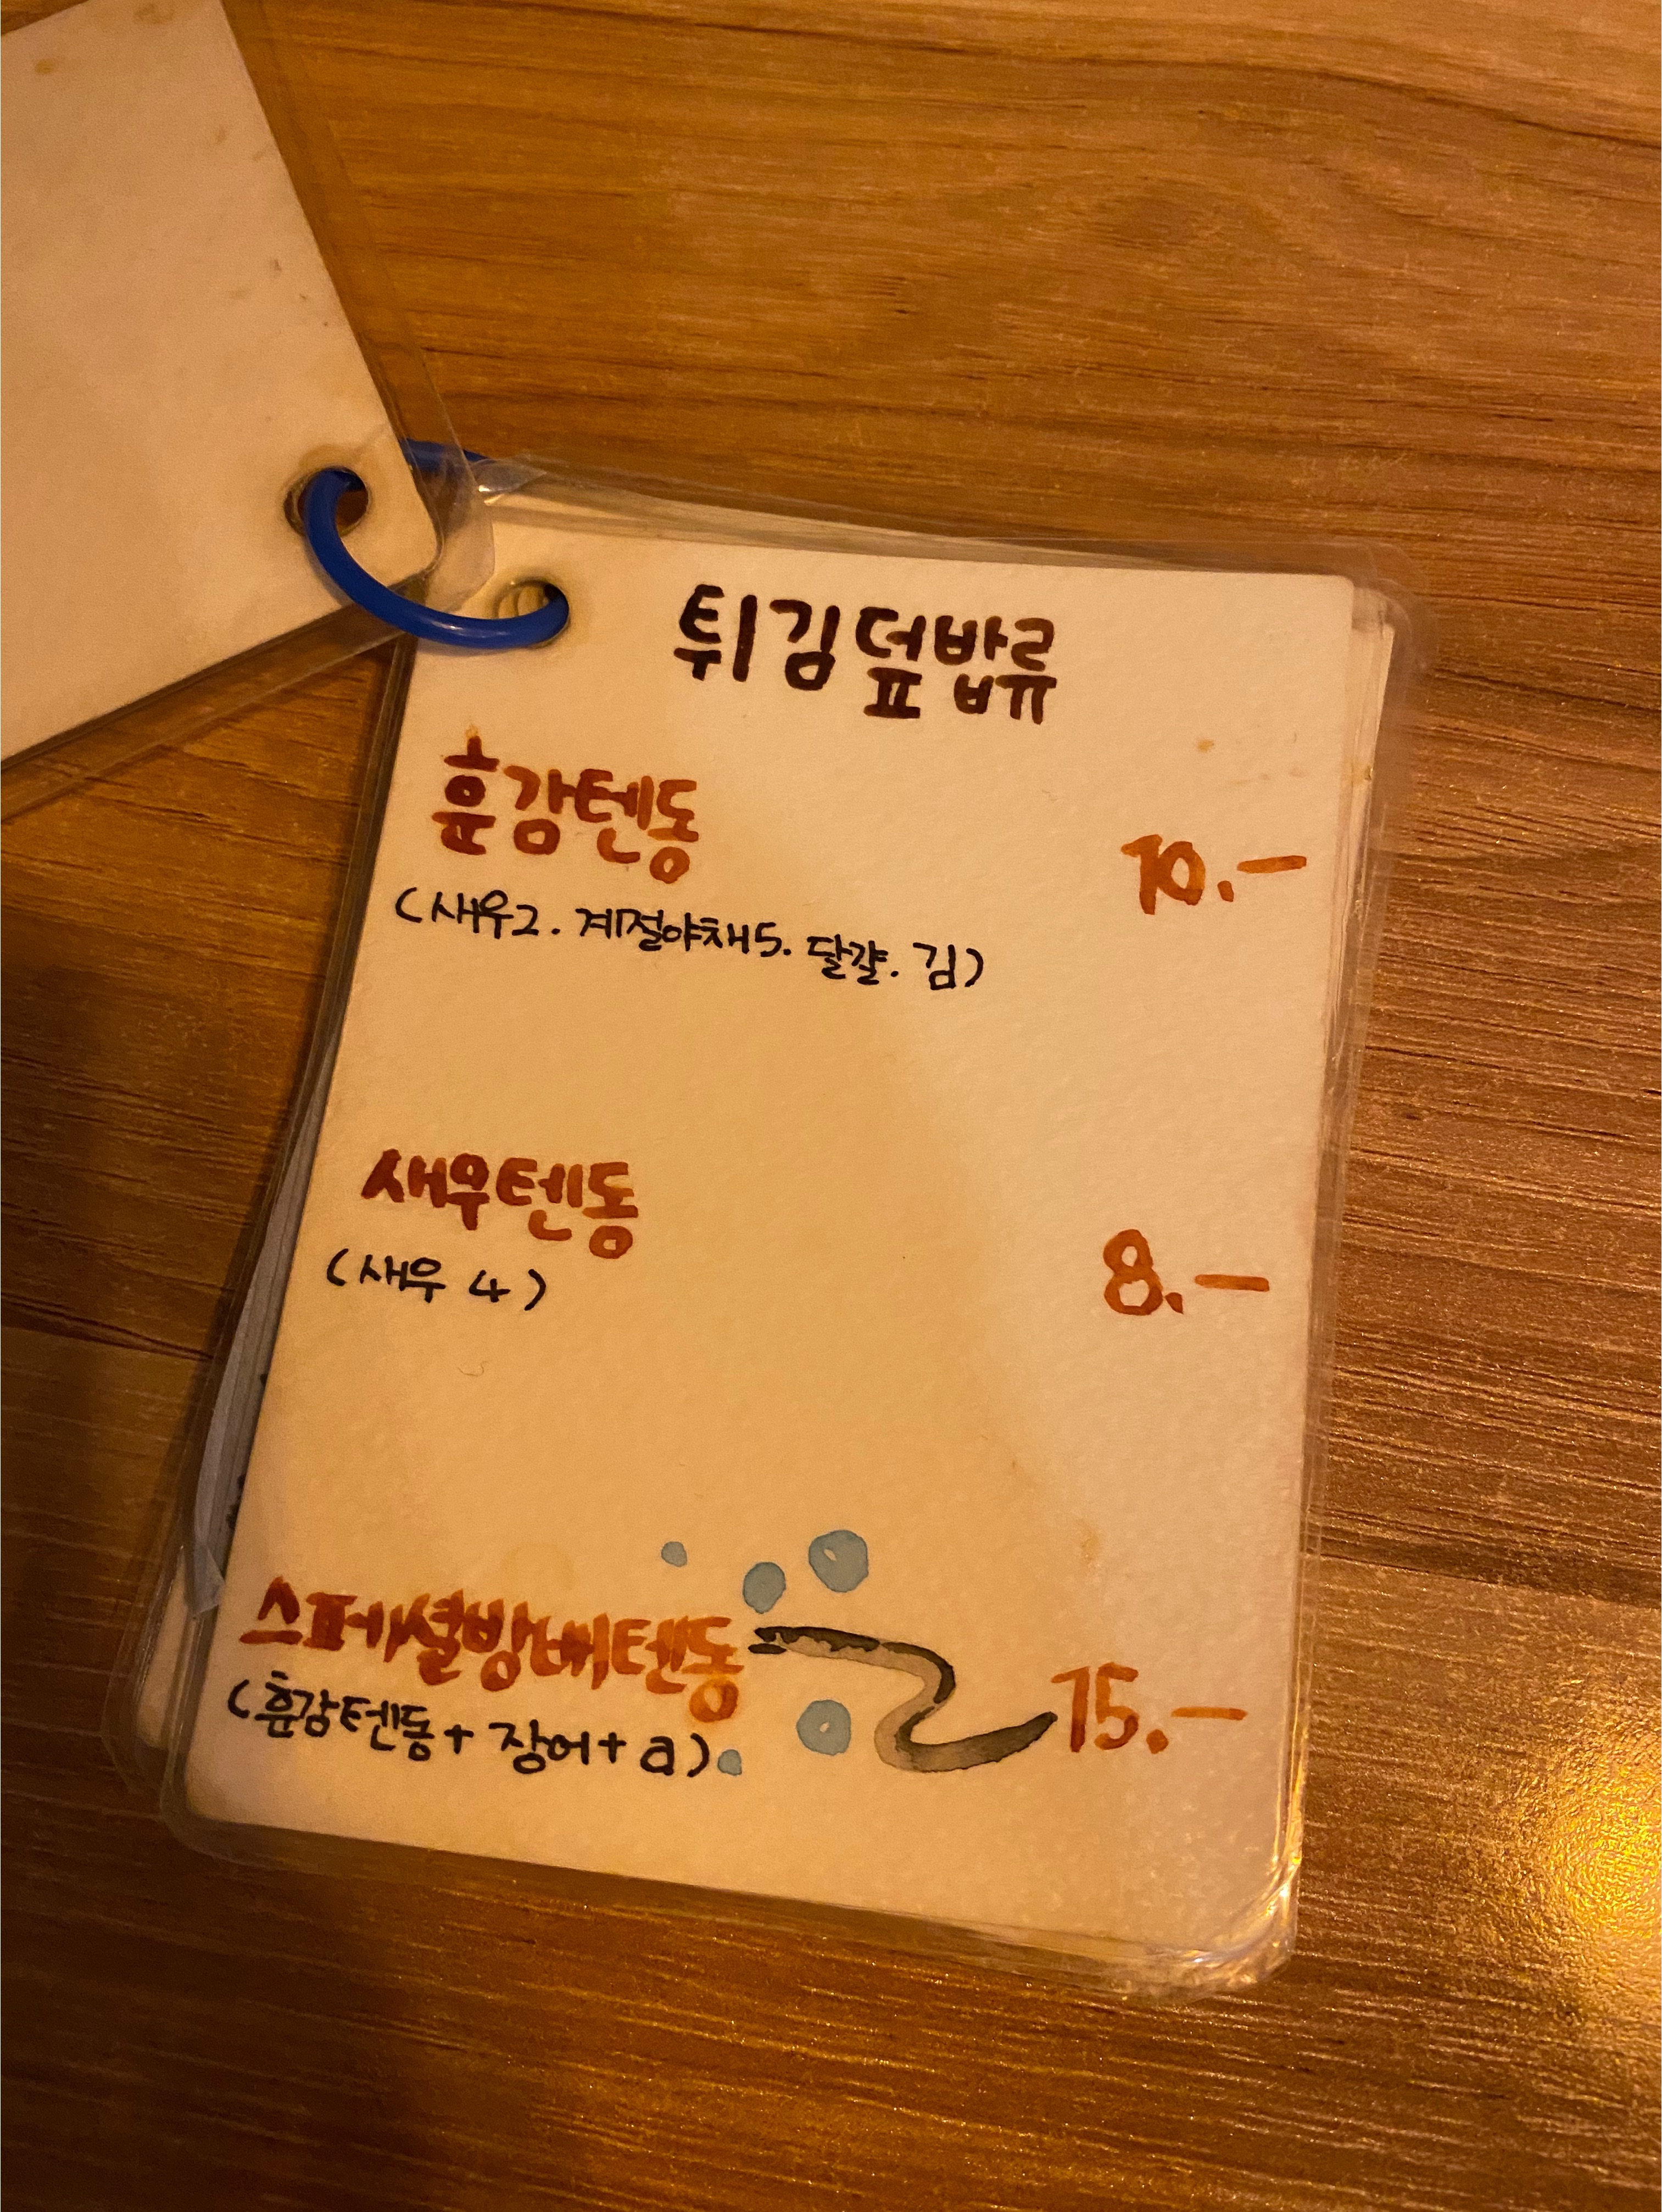 튀김덮밥류
훈감텐동 10.-
(새우2. 계절야채5. 달걀. 김)
새우텐동 8.-
(새우 4)
스페셜방배텐동 15.-
(훈감텐동+ 장어+ a)